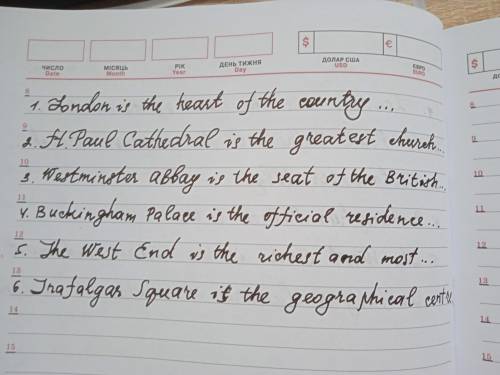 $ € $
ЧИСЛО МІСЯЦЬ РІК ДЕНЬ ТИЖНЯ ДОЛАР США ЄВРО
Date Month Year Day USD EURO
8
1. London is the heart of the country ...
9
2. St. Paul Cathedral is the greatest church...
10
3. Westminster abbay is the seat of the British...
11
4. Buckingham Palace is the official residence...
12
5. The West End is the richest and most...
13
6. Trafalgar Square is the geographical
14
15
8
9
10
11
12
13
14
15